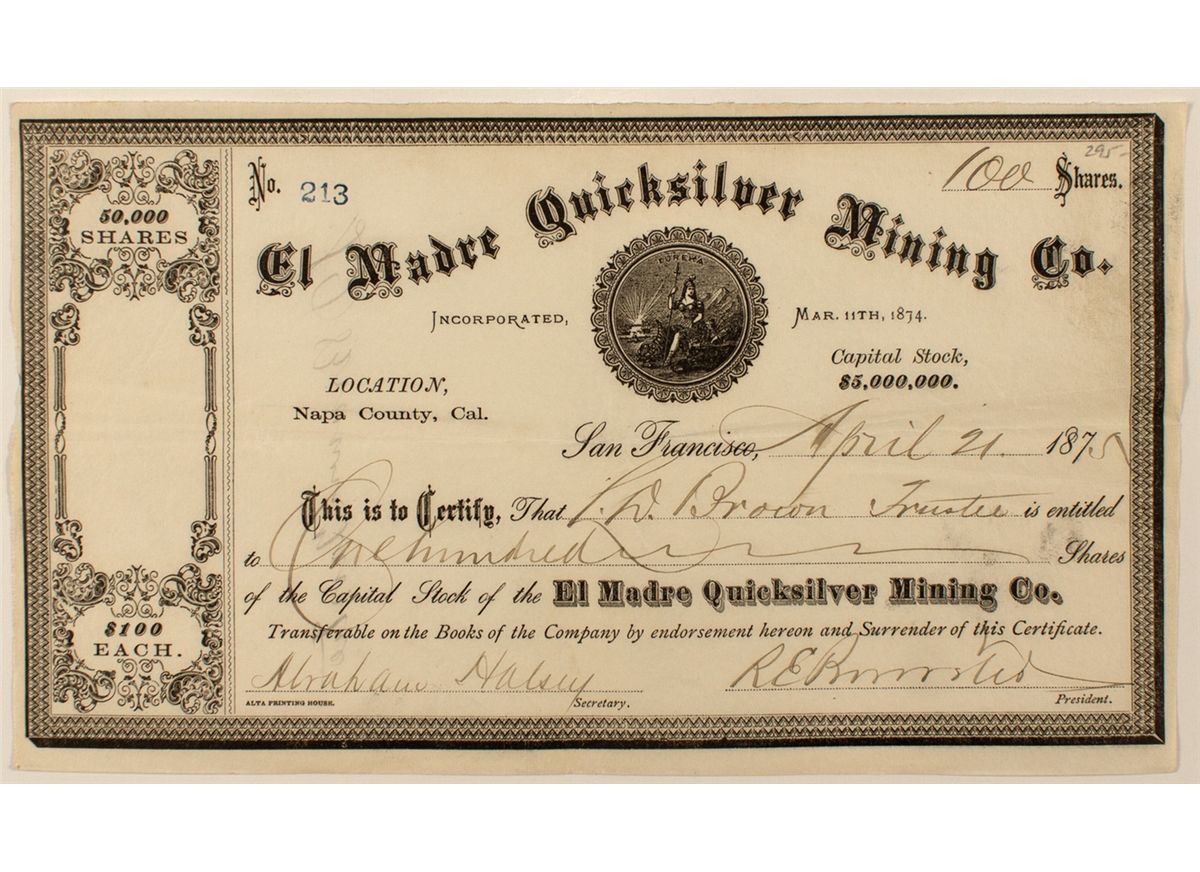 295-
No. 213
100 Shares.
50,000
SHARES
El Madre Quicksilver Mining Co.
EUREKA
INCORPORATED, MAR. 11TH, 1874.
LOCATION,
Napa County, Cal.
Capital Stock,
$5,000,000.
San Francisco, April 21. 1875
This is to Certify, That D. Brown Trustee is entitled
to One hundred Shares
of the Capital Stock of the El Madre Quicksilver Mining Co.
Transferable on the Books of the Company by endorsement hereon and Surrender of this Certificate.
$100
EACH.
Abraham Halsey R E
ALTA PRINTING HOUSE. Secretary. President.